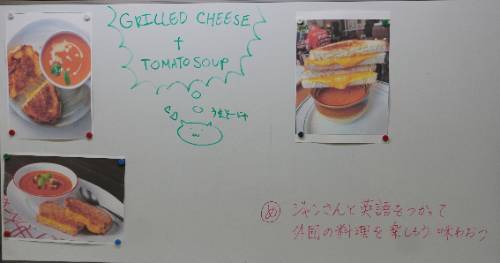 GRILLED CHEESE
+
TOMATO SOUP
め ジャンさんと英語をつかって
外国の料理を楽しもう 味わおう